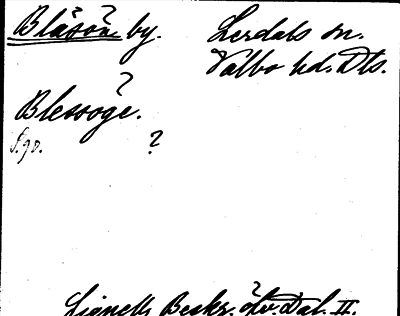 Blåsön by. Lerdals sn.
Valbo hd. Dls.
?
Blessöge.
S. 90. ?
Lignells Beskr. öv. Dal. II.